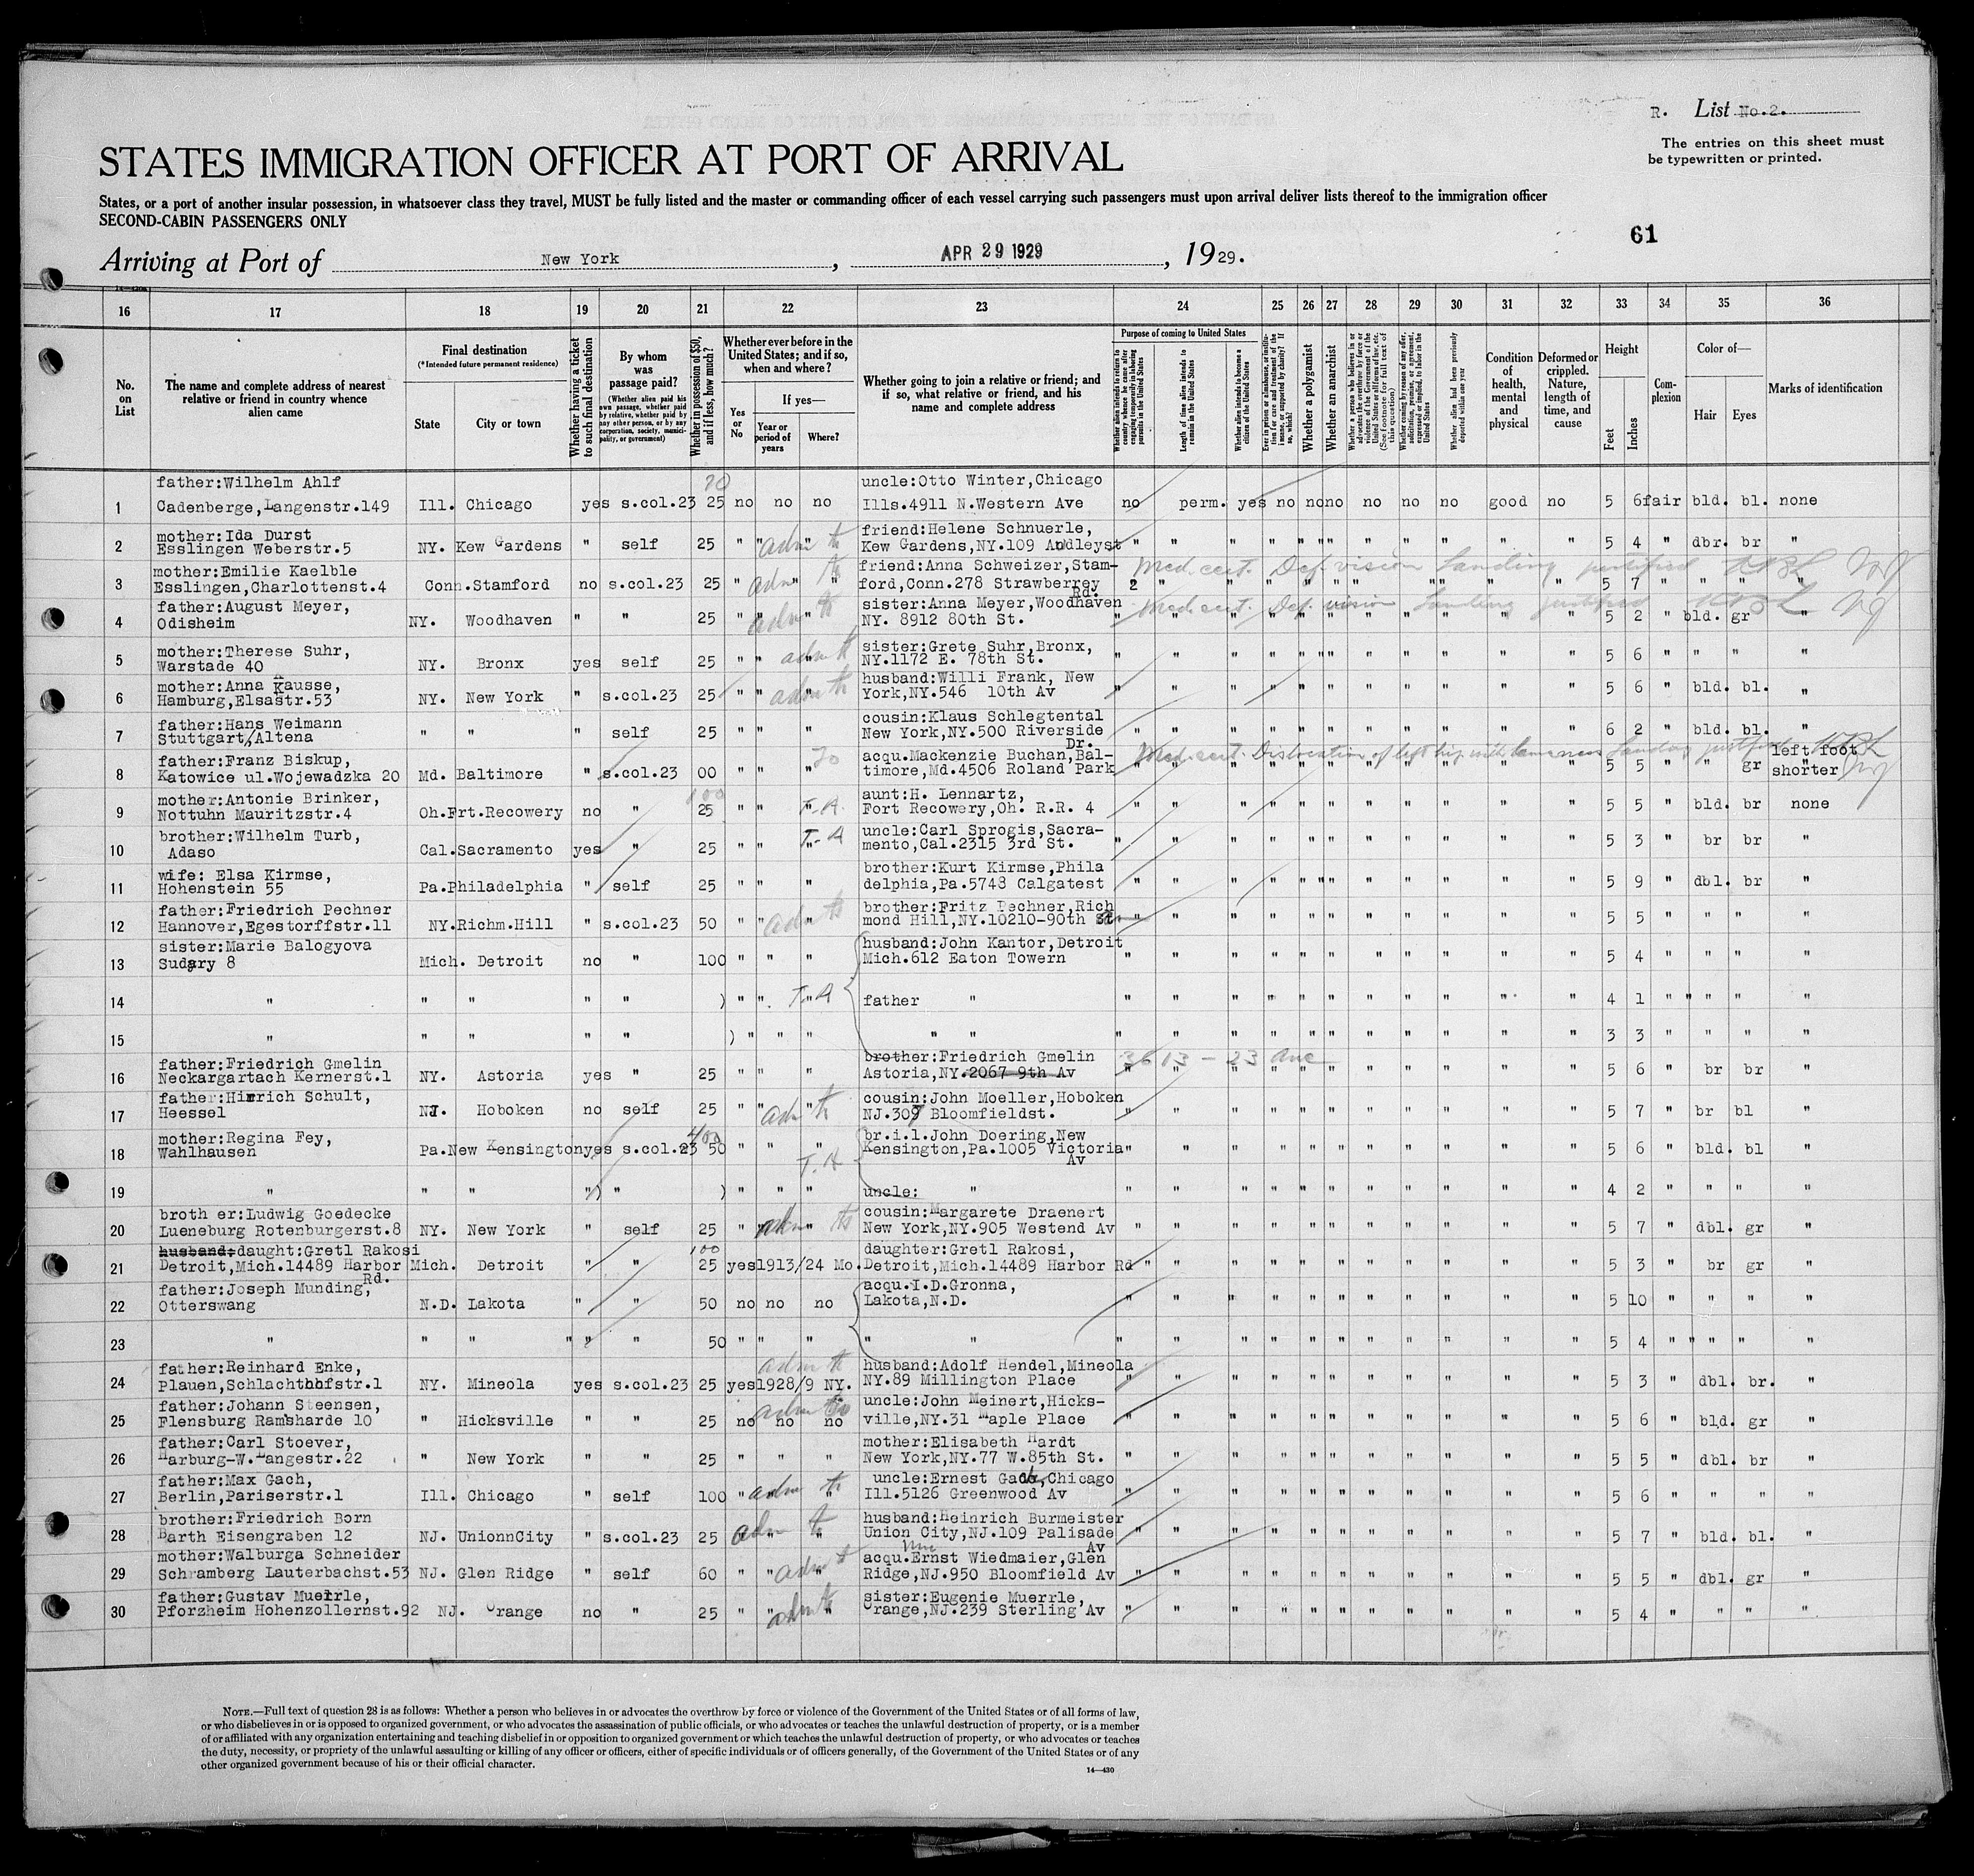 R. List No.2.
The entries on this sheet must
be typewritten or printed.
STATES IMMIGRATION OFFICER AT PORT OF ARRIVAL
States, or a port of another insular possession, in whatsoever class they travel, MUST be fully listed and the master or commanding officer of each vessel carrying such passengers must upon arrival deliver lists thereof to the immigration officer
SECOND-CABIN PASSENGERS ONLY
61
Arriving at Port of New York, APR 29 1929, 1929.
16 17 18 19 20 21 22 23 24 25 26 27 28 29 30 31 32 33 34 35 36
No. on List
The name and complete address of nearest relative or friend in country whence alien came
Final destination
(*Intended future permanent residence)
State
City or town
Whether having a ticket to such final destination
By whom was passage paid?
(Whether alien paid his own passage, whether paid by relative, whether paid by any other person, or by any corporation, society, municipality, or government)
Whether in possession of $50, and if less, how much?
Whether ever before in the United States; and if so, when and where?
Yes or No
If yes—
Year or period of years
Where?
Whether going to join a relative or friend; and if so, what relative or friend, and his name and complete address
Purpose of coming to United States
Whether alien intends to return to country whence he came after engaging temporarily in laboring pursuits in the United States
Length of time alien intends to remain in the United States
Whether alien intends to become a citizen of the United States
Whether a polygamist
Whether an anarchist
Whether alien had been previously deported within one year
Condition of health, mental and physical
Deformed or crippled. Nature, length of time, and cause
Height
Feet
Inches
Complexion
Color of—
Hair
Eyes
Marks of identification
father:Wilhelm Ahlf 70 uncle:Otto Winter,Chicago
1 Cadenberge,Langenstr.149 Ill. Chicago yes s.col.23 25 no no no Ills.4911 N.Western Ave no perm. yes no no no no no no good no 5 6 fair bld. bl. none
mother:Ida Durst friend:Helene Schnuerle,
2 Esslingen Weberstr.5 NY. Kew Gardens " self 25 " " " Kew Gardens,NY.109 Audleyst " " " " " " " " " " " 5 4 " dbr. br "
mother:Emilie Kaelble friend:Anna Schweizer,Stam- Med. cert. Def. vision Landing justified
3 Esslingen,Charlottenst.4 Conn.Stamford no s.col.23 25 " " " ford,Conn.278 Strawberrey Rd. 2 " " " " " " " " " " 5 7 " " " "
father:August Meyer, sister:Anna Meyer,Woodhaven Med cert. Def. vision Landing justified
4 Odisheim NY. Woodhaven " " 25 " " " NY. 8912 80th St. " " " " " " " " " " " 5 2 " bld. gr "
mother:Therese Suhr, sister:Grete Suhr,Bronx,
5 Warstade 40 NY. Bronx yes self 25 " " " NY.1172 E. 78th St. " " " " " " " " " " " 5 6 " " " "
mother:Anna Kausse, husband:Willi Frank, New
6 Hamburg,Elsastr.53 NY. New York " s.col.23 25 " " " York,NY.546 10th Av " " " " " " " " " " " 5 6 " bld. bl. "
father:Hans Weimann cousin:Klaus Schlegtental
7 Stuttgart/Altena " " " self 25 " " " New York,NY.500 Riverside Dr. " " " " " " " " " " " 6 2 " bld. bl. "
father:Franz Biskup, 70 acqu.Mackenzie Buchan,Bal- Med. cert. Dislocation of left hip with lameness Landing justified left foot
8 Katowice ul.Wojewadzka 20 Md. Baltimore " s.col.23 00 " " " timore,Md.4506 Roland Park " " " " " " " " " " " 5 5 " " gr shorter
mother:Antonie Brinker, 100 aunt:H. Lennartz,
9 Nottuhn Mauritzstr.4 Oh.Frt.Recovery no " 25 " " T-A. Fort Recovery,Oh. R.R. 4 " " " " " " " " " " " 5 5 " bld. br none
brother:Wilhelm Turb, T-A uncle:Carl Sprogis,Sacra-
10 Adaso Cal.Sacramento yes " 25 " " " mento,Cal.2315 3rd St. " " " " " " " " " " " 5 3 " br br "
wife: Elsa Kirmse, brother:Kurt Kirmse,Phila
11 Hohenstein 55 Pa.Philadelphia " self 25 " " " delphia,Pa.5748 Calgatest " " " " " " " " " " " 5 9 " dbl. br "
father:Friedrich Pechner brother:Fritz Pechner,Rich
12 Hannover,Egestorffstr.11 NY.Richm.Hill " s.col.23 50 " " " mond Hill,NY.10210-90th " " " " " " " " " " " 5 5 " " " "
sister:Marie Balogyova husband:John Kantor,Detroit
13 Sudary 8 Mich. Detroit no " 100 " " " Mich.612 Eaton Towern " " " " " " " " " " " 5 4 " " " "
14 " " " " " ) " " T.A father " " " " " " " " " " " " 4 1 " " " "
15 " " " " " ) " " " " " " " " " " " " " " " " 3 3 " " " "
father:Friedrich Gmelin brother:Friedrich Gmelin 3613 - 23 ave
16 Neckargartach Kernerst.1 NY. Astoria yes " 25 " " " Astoria,NY.2067 9th Av " " " " " " " " " " " 5 6 " br br "
father:Hinrich Schult, cousin:John Moeller,Hoboken
17 Heessel NJ. Hoboken no self 25 " " " NJ.309 Bloomfieldst. " " " " " " " " " " " 5 7 " br bl "
mother:Regina Fey, 400 br.i.l.John Doering,New
18 Wahlhausen Pa.New Kensington yes s.col.23 50 " " " Kensington,Pa.1005 Victoria Av " " " " " " " " " " " 5 6 " bld. bl "
T.A
19 " " " ") " ) " " " uncle: " " " " " " " " " " " " 4 2 " " " "
broth er:Ludwig Goedecke cousin:Margarete Draenert
20 Lueneburg Rotenburgerst.8 NY. New York " self 25 " " " New York,NY.905 Westend Av " " " " " " " " " " " 5 7 " dbl. gr "
husband:daught:Gretl Rakosi 100 daughter:Gretl Rakosi,
21 Detroit,Mich.14489 Harbor Rd. Mich. Detroit " " 25 yes 1913/24 Mo. Detroit,Mich.14489 Harbor Rd " " " " " " " " " " 5 3 " br gr "
father:Joseph Munding, acqu.I.D.Gronna,
22 Otterswang N.D. Lakota " " 50 no no no Lakota,N.D. " " " " " " " " " " " 5 10 " " " "
23 " " " " " 50 " " " " " " " " " " " " " " " " " 5 4 " " " "
father:Reinhard Enke, husband:Adolf Hendel,Mineola
24 Plauen,Schlachthofstr.1 NY. Mineola yes s.col.23 25 yes 1928/9 NY. NY.89 Millington Place " " " " " " " " " " " 5 3 " dbl. br. "
father:Johann Steensen, uncle:John Meinert,Hicks-
25 Flensburg Ramsharde 10 " Hicksville " " 25 no no no ville,NY.31 Maple Place " " " " " " " " " " " 5 6 " bld. gr "
father:Carl Stoever, mother:Elisabeth Hardt
26 Harburg-W.Langestr.22 " New York " " 25 " " " New York,NY.77 W.85th St. " " " " " " " " " " " 5 5 " dbl. br "
father:Max Gach, uncle:Ernest Gach,Chicago
27 Berlin,Pariserstr.1 Ill. Chicago " self 100 " " " Ill.5126 Greenwood Av " " " " " " " " " " " 5 6 " " " "
brother:Friedrich Born husband:Heinrich Burmeister
28 Barth Eisengraben 12 NJ. UnionnCity " s.col.23 25 " " Union City,NJ.109 Palisade Av " " " " " " " " " " " 5 7 " bld. bl. "
mother:Walburga Schneider acqu.Ernst Wiedmaier,Glen
29 Schramberg Lauterbachst.53 NJ. Glen Ridge " self 60 " " " Ridge,NJ.950 Bloomfield Av " " " " " " " " " " " 5 5 " dbl. gr "
father:Gustav Muerrle, sister:Eugenie Muerrle,
30 Pforzheim Hohenzollernst.92 NJ. Orange no " 25 " " " Orange,NJ.239 Sterling Av " " " " " " " " " " " 5 4 " " " "
NOTE.—Full text of question 28 is as follows: Whether a person who believes in or advocates the overthrow by force or violence of the Government of the United States or of all forms of law,
or who disbelieves in or is opposed to organized government, or who advocates the assassination of public officials, or who advocates or teaches the unlawful destruction of property, or is a member
of or affiliated with any organization entertaining and teaching disbelief in or opposition to organized government or which teaches the unlawful destruction of property, or who advocates or teaches
the duty, necessity, or propriety of the unlawful assaulting or killing of any officer or officers, either of specific individuals or of officers generally, of the Government of the United States or of any
other organized government because of his or their official character.
14—430